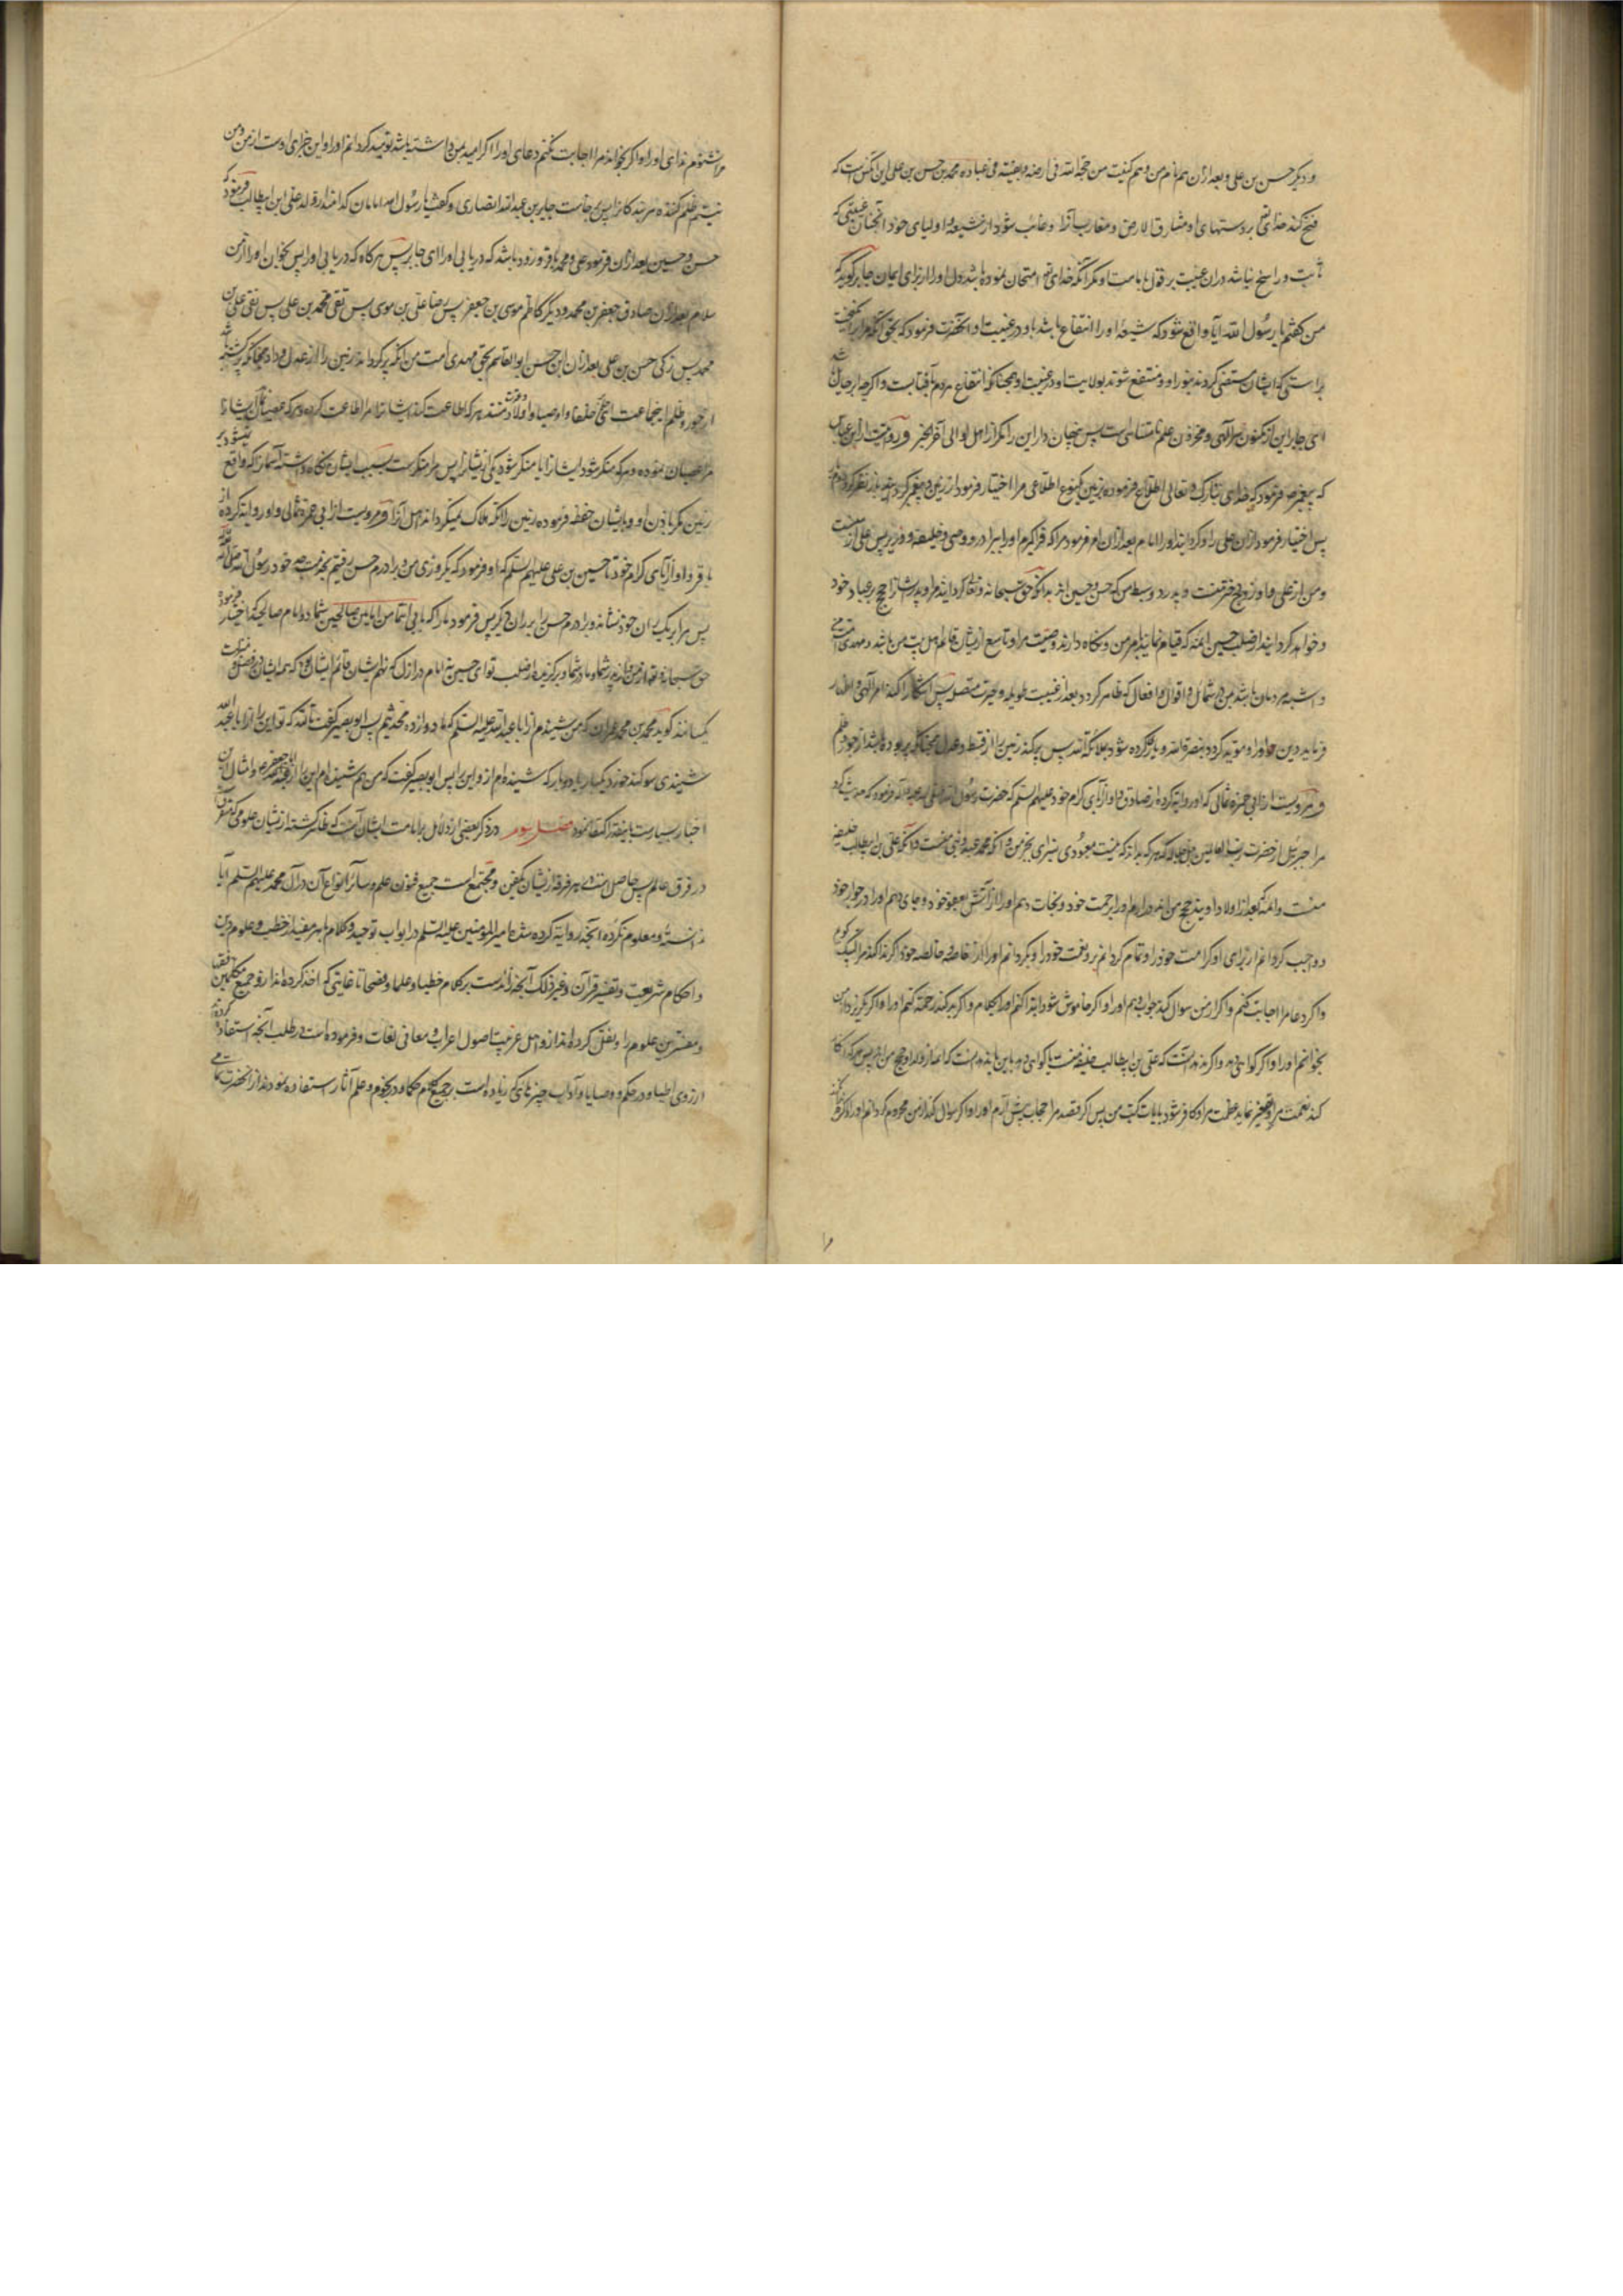 و دیگر حسن بن علی و بعد ازان هم نام من و هم کنیت من حجة الله فی ارضه و بقیته فی عباده محمد بن حسن بن علی این آنکس است که
فتح کند خدای تع بر دستهای او مشارق الارض و مغارب آنرا و غایب شود از شیعه و اولیای خود آنچنان غیبتی که
ثابت و راسخ نباشد دران غیبت بر قول بامامت او مگر آنکه خدای تع امتحان نموده باشد دل او را از برای ایمان جابر گوید که
من گفتم یا رسول الله آیا واقع شود که شیعه او را انتفاع باشد باو در غیبت او آنحضرت فرمود که بحق آنکه مرا برانگیخت
براستی که ایشان مستضی گردند بنور او و منتفع شوند بولایت او در غیبت او همچنانکه انتفاع مردم بآفتابست و اگرچه ابر حایل باشد
ای جابر این از مکنون سر الهی و مخزون علم نامتناهی است پس پنهان دار این را مگر از اهل او الی آخر الخبر و رویست از ابن عباس
که پیغمبر ص فرمود که خدای تبارک و تعالی اطلاع فرموده بزمین بنوع اطلاعی مرا اختیار فرمود از زمین و پیغمبر گردانید باز نظر کرد دوم
پس اختیار فرمود ازان علی را و گردانید او را امام بعد ازان ام فرمود مرا که فراگیرم او را برادر و وصی و خلیفه و وزیر پس علی از منست
و من از علی ام و او زوج دختر منست و پدر دو سبط من که حسن و حسین اند بدانکه حق سبحانه و تعالی گردانید مرا و ایشانرا حجج بر عباد خود
و خواهد گردانید از صلب حسین ائمه که قیام نمایند بامر من و نگاه دارند وصیت مرا و تاسع ازیشان قائم اهل بیت من باشد و مهدی امت من
و اشبه مردمان باشد بمن در شمائل و اقوال و افعال که ظاهر گردد بعد از غیبت طویله و حیرت مضله پس آشکارا کند امر الهی و اظهار
فرماید دین او را و مؤید گردد بنصرة الله و یاری کرده شود بملائکة الله پس پر کند زمین را از قسط و عدل همچنانکه پر بوده باشد از جور و ظلم
و مرویست از ابی حمزه ثمالی که او روایة کرده از صادق ع و او از آبای کرام خود علیهم السلم که حضرت رسول الله صلی الله علیه و آله فرمود که حدیث کرد
مرا جبرئیل از حضرت رب العالمین جل جلاله که هر که بداند که نیست معبودی بسزای بجز من و آنکه محمد عبد و نبی منست و آنکه علی بن ابیطالب خلیفه
منست و ائمه بعد از اولاد او یند حجج من اند درارم او را برحمت خود و نجات دهم او را از آتش بعفو خود و جای دهم او را در جوار خود
و واجب گردانم از برای او کرامت خود را و تمام گردانم برو نعمت خود را و بگردانم او را از خاصه و خالصه خود اگر ندا کند مرا لبیک گویم
و اگر دعا مرا اجابت کنم و اگر از من سوال کند جواب دهم او را و اگر خاموش شود ابتدا کنم او را بکلام و اگر بد کند رحمت کنم او را و اگر بگریزد از من
بخوانم او را و اگر گواهی و اگر نداند که علی بن ابیطالب خلیفه منست یا گواهی دهد باین یا نداند که ائمه از ولد او حجج من اند پس هر که انکار
کند نعمت مرا و تصغیر نماید عظمت مرا و کافر شود بآیات کتب من پس اگر قصد مرا حجاب پیش آرم او را و اگر سوال کند از من محروم گردانم او را و اگر ندا کند
مرا
مرا نشنوم ندای او را و اگر بخواند مرا اجابت نکنم دعای او را و اگر امید بمن داشته باشد نومید گردانم او را و این جزای اوست از من و من
نیستم ظلم کننده مر بندگانرا پس برخاست جابر بن عبدالله انصاری و گفت یا رسول الله امامان کدامند از ولد علی ابن ابیطالب فرمود که
حسن و حسین بعد ازان فرمود علی و محمد باقر و زود باشد که دریابی او را ای جابر پس هر گاه که دریابی او را پس بخوان او را از من
سلام بعد ازان صادق جعفر بن محمد و دیگر کاظم موسی بن جعفر پس رضا علی بن موسی پس تقی محمد بن علی پس نقی علی بن
محمد پس زکی حسن بن علی بعد ازان ابن حسن ابوالقاسم بحق مهدی امت من آنکه پر گرداند زمین را از عدل و داد همچنانکه پر گشته باشد
از جور و ظلم اینجماعت ای جابر خلفا و اوصیا و اولاد و عترت منند هر که اطاعت کند ایشانرا مرا اطاعت کرده و هر که عصیان کند ایشانرا
مرا عصیان نموده و هر که منکر شود ایشانرا یا منکر شود یکی ازیشانرا پس مرا منکرست بسبب ایشان نگاه داشته آسمانرا که واقع نشود بر
زمین مگر باذن او و بایشان حفظ فرموده زمین را که هلاک نمیگرداند اهل آنرا و مرویست از ابی حمزه ثمالی و او روایة کرده از
باقر و او از آبای کرام خود تا حسین بن علی علیهم السلم که او فرمود که یکروزی من و برادرم حسن رفتیم بخدمت جد خود رسول الله صلی الله علیه و آله
پس مرا بر یک ران خود نشاند و برادرم حسن را بر ران دیگر پس فرمود ما را که بابی انتما من امامین صالحین شما دو امام صالحید که اختیار فرمود
حق سبحانه و تع از من و از پدر شما و مادر شما و برگزیده از صلب تو ای حسین نه امام در ازل که نهم ایشان قائم ایشان بود که همه ایشان در فضل و منزلت
یکسانند گوید محمد بن محمد عمران که من شنیدم از ابا عبدالله علیه السلم که ما دوازده محدثیم پس ابو بصیر گفت تالله که تو این را از ابا عبدالله
شنیدی سوگند خورد یکبار یا دو بار که شنیده ام از و این را پس ابو بصیر گفت که من هم شنیده ام این را از ابی جعفر ع و امثال این
اخبار بسیارست باینقدر اکتفا نمود فصل سوم در ذکر بعضی از دلائل بر امامت ایشان آنست که ظاهر گشته ازیشان علومی که متفرق
در فرق عالم پس حاصل شد بهر فرقه ازیشان یکفن و مجتمع است جمیع فنون علم و سائر انواع آن در آل محمد علیهم السلم آیا
ندانسته و معلوم نکرده آنچه روایة کرده شد از امیر المومنین علیه السلم در ابواب توحید و کلام بهر مفید از خطب و علوم دین
و احکام شریعت و تفسیر قرآن و غیر ذلک آنچه زائدست بر کلام خطبا و علما و فصحا تا غایتی که اخذ کرده اند ازو جمیع متکلمین و فقها
و مفسرین علوم را و نقل کرده اند ازو اهل عربیت اصول اعراب و معانی لغات و فرموده است در طب آنچه استفاده کرده اند
ازوی اطبا و در حکم و وصایا و آداب چیزهای که زیاده است بر جمیع کلام حکما و در نجوم و علم آثار استفاده نمودند از آنحضرت تمامی